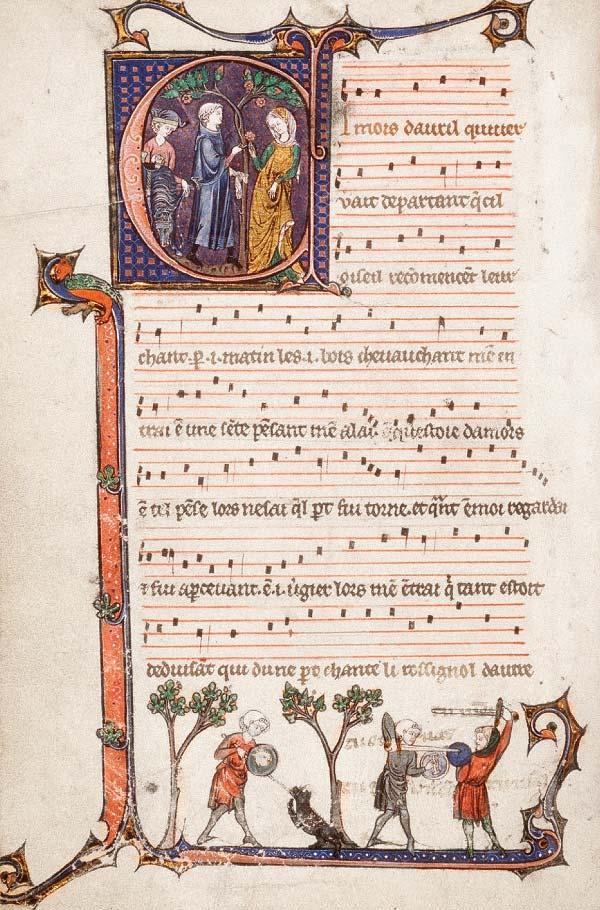 El mois dauril quiuier
vait departant q̃ cil
oiseil recõmencẽt leur
chant · p̱ · i · matin les · i · bois cheuauchant mẽ en
trai ẽ une sẽte pẽsant mẽ alai damors
ẽ tel pẽse lors ne sai q̃l pt sui torne. et q̃nt ẽ moi regardai
sui apceuant. ẽ · i · ugier lors mẽ ẽtrai q̃ tant estoit
deduisãt qui dune pt chante li rossignol dautre